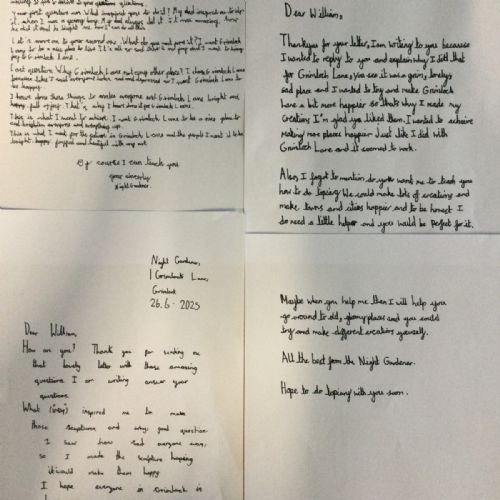 Your first question What inspired you to do it? My dad inspired me to do
it, when I was a young boy. My dad always did it it was amazing. Since
Let's move on to your second one. What do you want for it? I want Grimlock
Lane to be a nice place to live
joy to Grimlock Lane.
Last question Why Grimlock Lane not any other place? I chose Grimlock Lane
because
be happy.
I have done these things to make everyone and Grimlock Lane bright and
happy, full of joy. That's why I have done it for Grimlock Lane.
This is what I want to achieve. I want Grimlock Lane to be a nice place to
and brighten everyone and everything up.
This is what I want for the future in Grimlock Lane and the people I want it to be
bright happy
Of course I can teach you
yours sincerely
Night Gardener.
Dear William,
Thankyou for your letter, I am writing to you because
I wanted to reply to you and explain why I did that
for Grimlock Lane, you see it was a grim, lonely,
sad place and I wanted to try and make Grimlock
Lane a bit more happier so that's why I made my
creations I'm glad you liked them. I wanted to achieve
making more places happier Just like I did with
Grimlock Lane and it seemed to work.
Also, I forgot to mention do you want me to teach you
how to do topiary We could make lots of creations and
make towns and cities happier and to be honest I
do need a little helper and you would be perfect for it.
Night Gardener,
1 Grimlock Lane,
Grimlock
26.6.2025
Dear William
How are you? Thank you for sending me
that lovely letter with those amazing
questions I am writing answer your
questions.
What inspired me to make
those sculptures and why, good question
I saw how sad everyone was,
so I made the sculpture hoping
it would make them happy
I hope everyone in Grimlock is
Maybe when you help me then I will help you
go around to old, gloomy places and you could
try and make different creations yourself.
All the best from the Night Gardener.
Hope to do topiary with you soon.